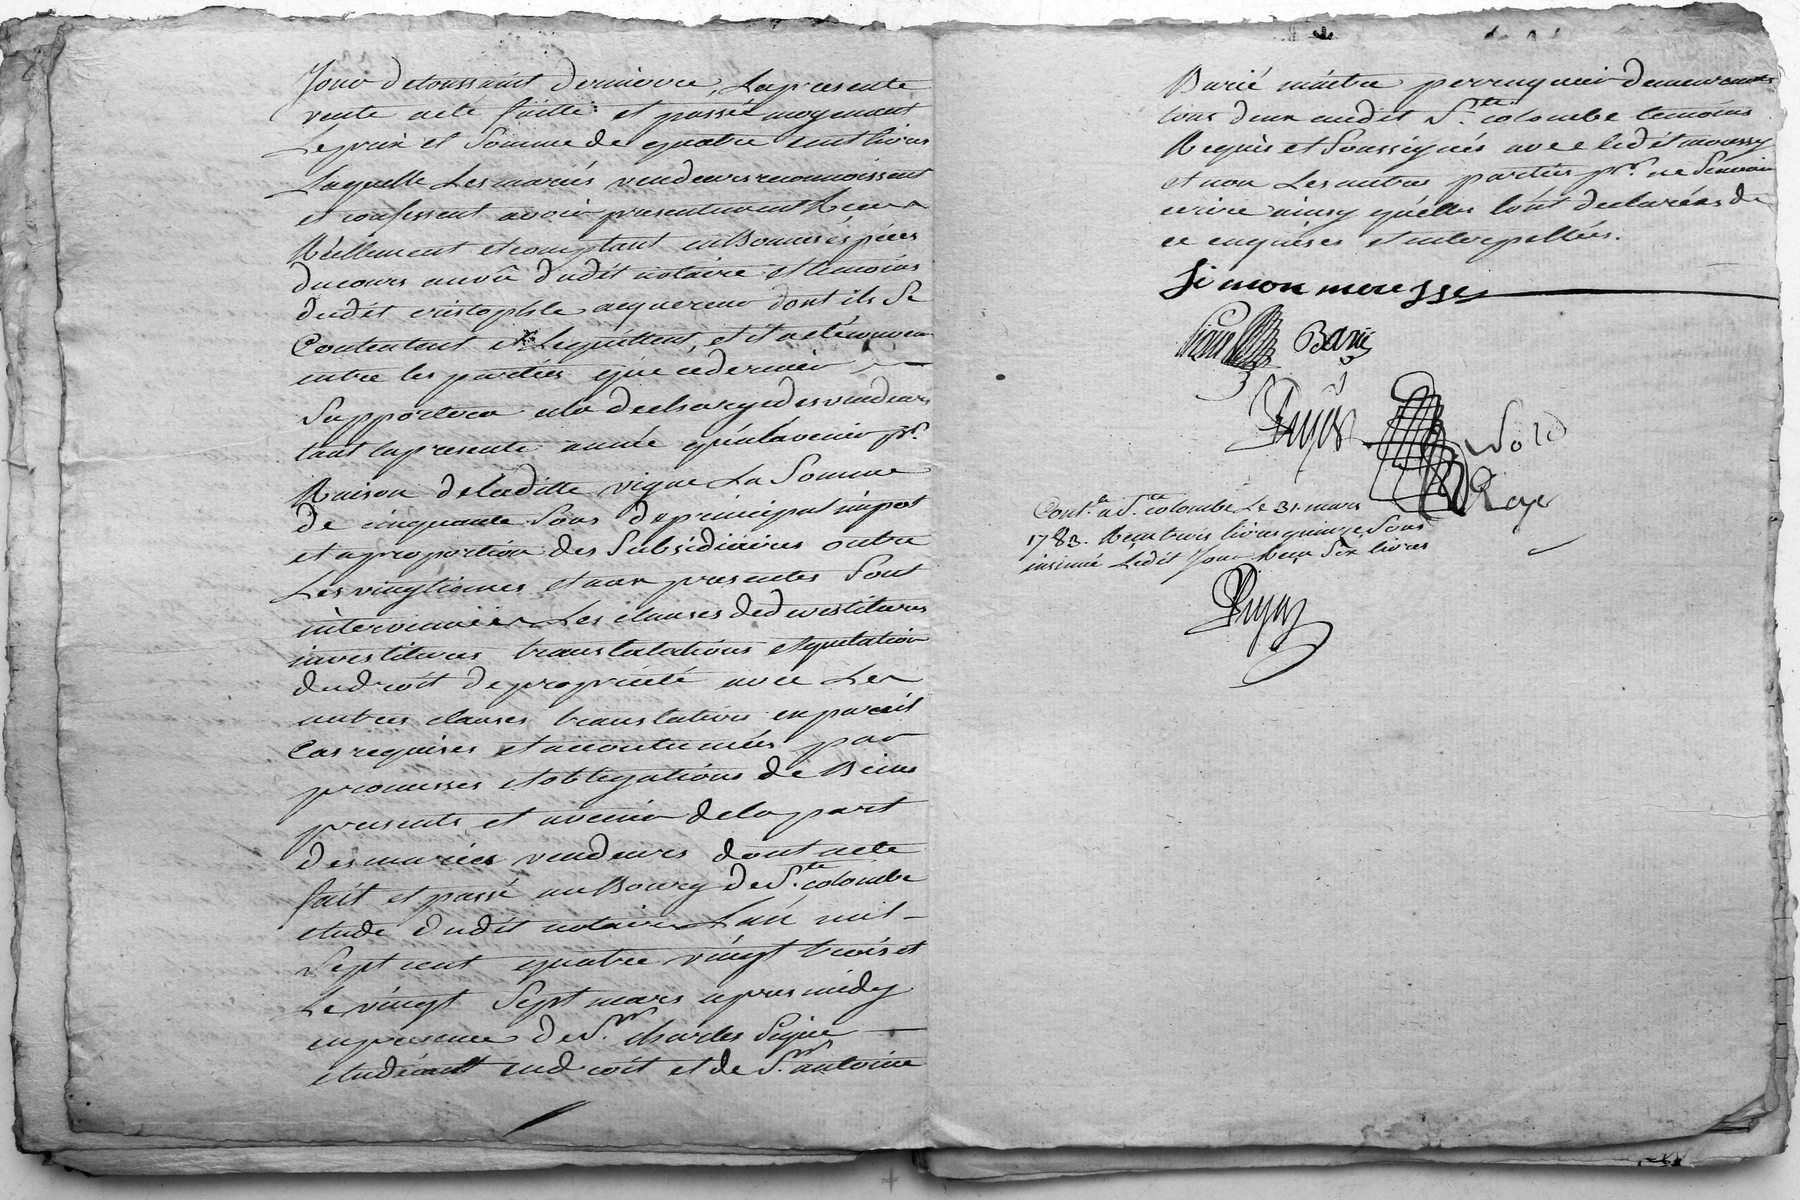 Jour de toussaint derniere, La presente
vente a eté faitte et passée moyenant
Le prix et Somme de quatre cent livres
Laquelle Les mariés vendeurs reconnoissent
et confessent avoir presentement Receu
Réellement et comptant en Bonnes éspéces
du cours au vû dudit notaire et témoins
dudit cristophle acquereur dont ils Se
Contentent et Lequittent, et il a eté convenu
entre les parties que ce dernier
Supportera a la decharge des vendeurs
tant la presente année qu'a l'avenir pr.
Raison de laditte vigne La Somme
de cinquante Sous de principal impot
et a proportion des Subsidiaires outre
Les vingtiemes et aux presentes Sont
intervenües Les clauses de devestitures
investitures translations
du droit de propriété avec Les
autres clauses translatives en pareil
Cas requises et accoutumées par
promesses et obligations de Biens
presents et avenir de la part
des mariés vendeurs dont acte
fait et passé au Bourg de Ste. colombe
etude dudit notaire L'an mil
Sept cent quatre vingt trois et
Le vingt Sept mars apres midy
en presence de Sr. charles
etudiant en droit et de Sr. antoine
Barié maitre perruquier demeurants
tous deux audit Ste. colombe temoins
Requis et Soussignés avec ledit
et non Les autres parties pr. ne Scavoir
ecrire ainsy qu'elles l'ont declarées de
ce enquises et interpellées.
Simon
Barié
Contlé a Ste. colombe Le 31. mars
1783. Reçu trois livres quinze Sous
insinué Ledit Jour Reçu Six livres